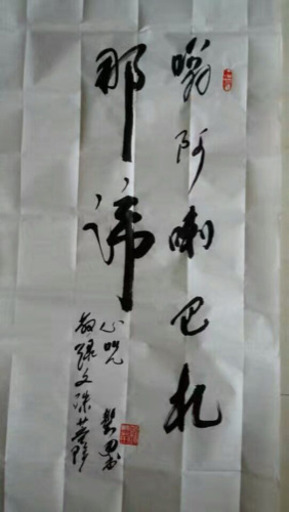 嗡阿喇巴札
那谛
敬录文殊菩萨
心咒